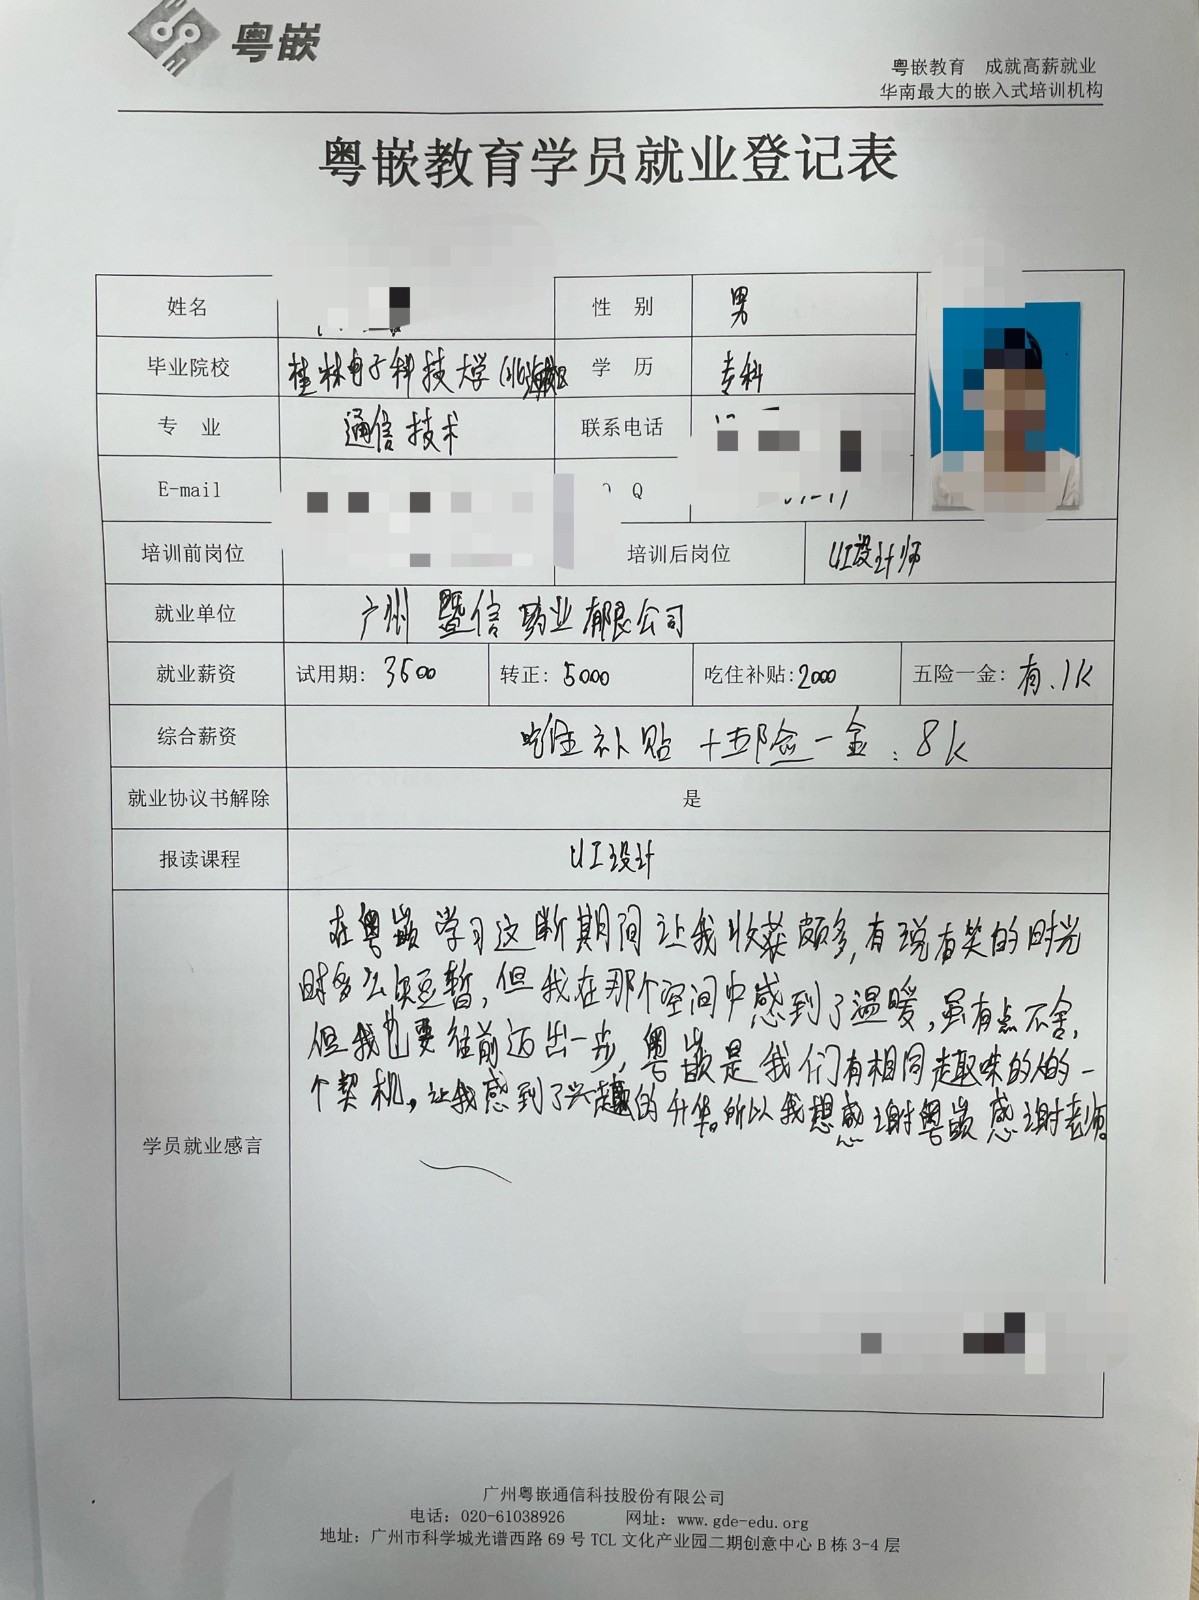 粤嵌
粤嵌教育 成就高薪就业
华南最大的嵌入式培训机构
粤嵌教育学员就业登记表
姓名 性 别 男
毕业院校 桂林电子科技大学(北海校区 学 历 专科
专 业 通信技术 联系电话
E-mail Q
培训前岗位 培训后岗位 UI设计师
就业单位 广州暨信药业有限公司
就业薪资 试用期: 3500 转正: 5000 吃住补贴: 2000 五险一金: 有、1K
综合薪资 吃住补贴+五险一金: 8k
就业协议书解除 是
报读课程 UI设计
学员就业感言
在粤嵌学习这断期间让我收获颇多,有说有笑的时光
时多么短暂,但我在那个空间中感到了温暖,虽有点不舍,
但我也要往前迈出一步,粤嵌是我们有相同趣味的人的一
个契机,让我感到了兴趣的升华。所以我想感谢粤嵌感谢老师。
广州粤嵌通信科技股份有限公司
电话: 020-61038926 网址: www.gde-edu.org
地址: 广州市科学城光谱西路 69 号 TCL 文化产业园二期创意中心 B 栋 3-4 层